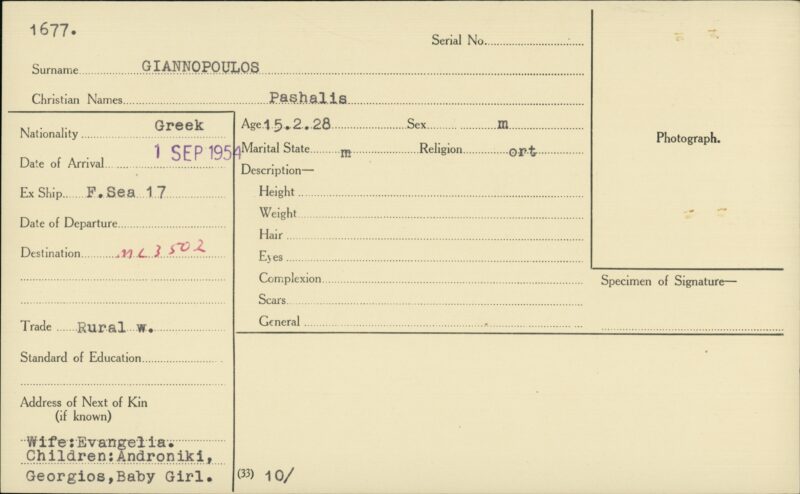 1677.
Serial No.
Surname GIANNOPOULOS
Christian Names Pashalis
Nationality Greek
Date of Arrival 1 SEP 1954
Ex Ship F.Sea 17
Date of Departure
Destination ML3502
Trade Rural w.
Standard of Education
Address of Next of Kin
(if known)
Wife:Evangelia.
Children:Androniki,
Georgios,Baby Girl.
Age 15.2.28 Sex m
Marital State m Religion ort
Description—
Height
Weight
Hair
Eyes
Complexion
Scars
General
(33) 10/
Photograph.
Specimen of Signature—